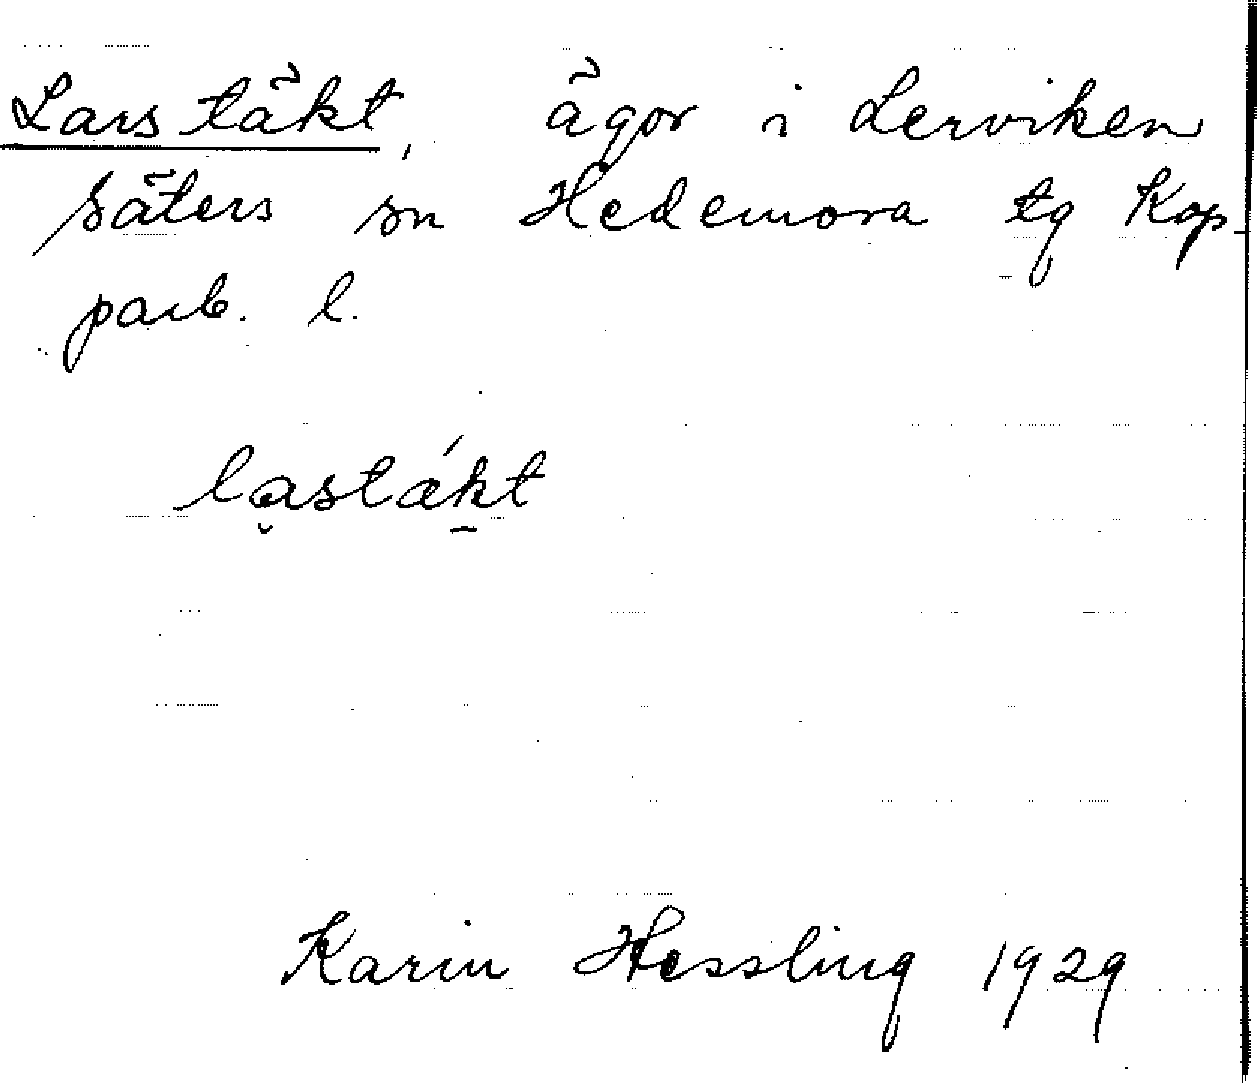 Lars täkt, ägor i Lerviken
Säters sn Hedemora tg Kop-
parb. l.
lastäkt
Karin Hessling 1929